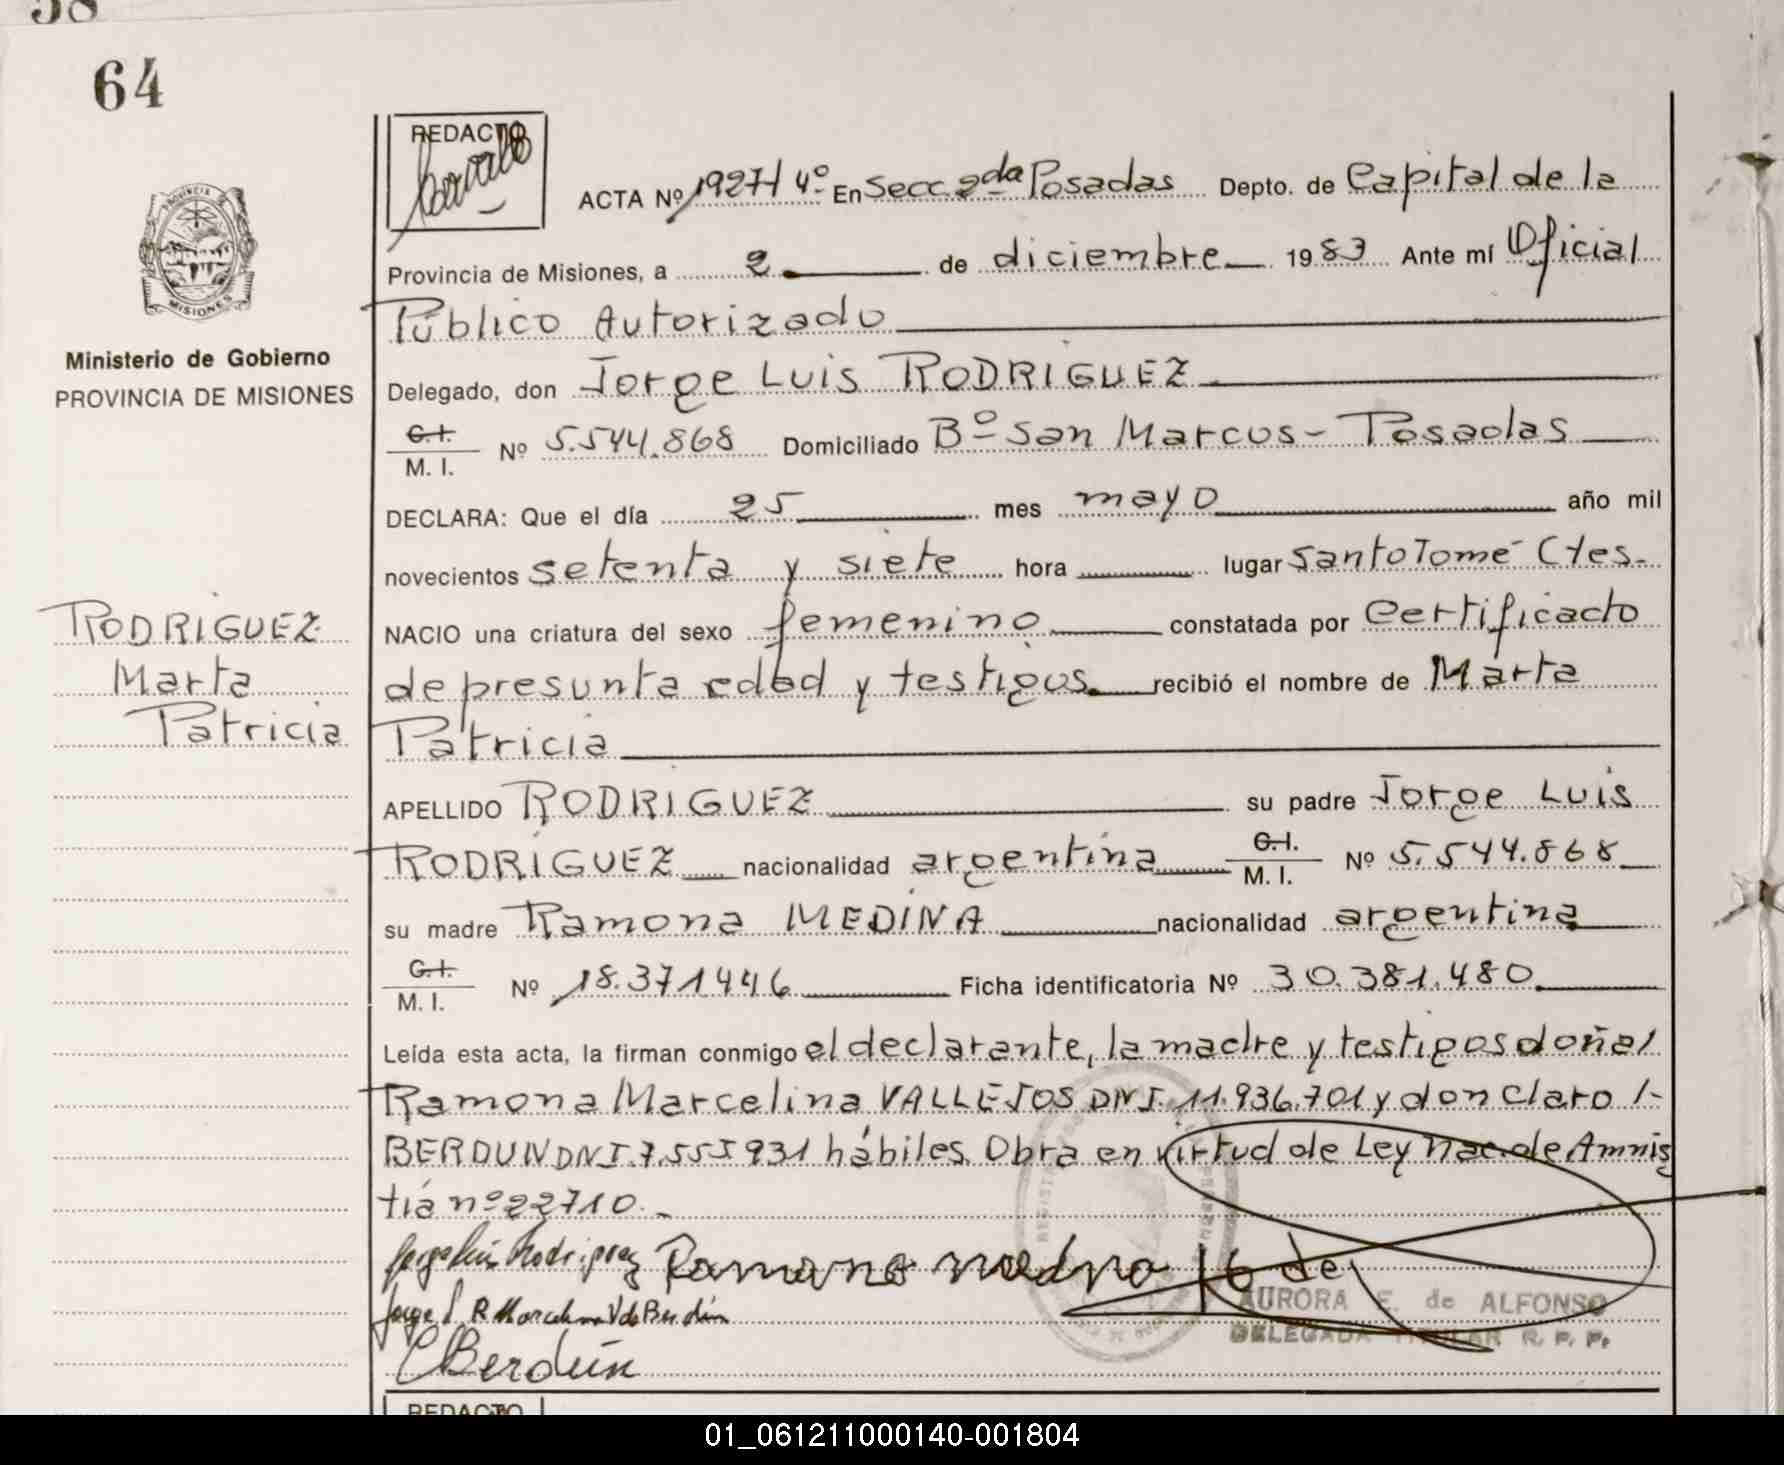 58
64
REDACTO
PROVINCIA
MISIONES
Ministerio de Gobierno
PROVINCIA DE MISIONES
ACTA Nº 1927/4º En Secc. 2da Posadas Depto. de Capital de la
Provincia de Misiones, a 2 de diciembre 1983 Ante mí Oficial
Público Autorizado
Delegado, don Jorge Luis RODRIGUEZ
C.I. / M. I. Nº 5.544.868 Domiciliado Bº San Marcos - Posadas
DECLARA: Que el día 25 mes mayo año mil
novecientos setenta y siete hora lugar Santo Tomé Ctes.
RODRIGUEZ
Marta
Patricia
NACIO una criatura del sexo femenino constatada por Certificado
de presunta edad y testigos recibió el nombre de Marta
Patricia
APELLIDO RODRIGUEZ su padre Jorge Luis
RODRIGUEZ nacionalidad argentina C.I. / M. I. Nº 5.544.868
su madre Ramona MEDINA nacionalidad argentina
C.I. / M. I. Nº 18.371446 Ficha identificatoria Nº 30.381.480
Leída esta acta, la firman conmigo el declarante, la madre y testigos doña/
Ramona Marcelina VALLEJOS DNI. 11.936.701 y don Claro /-
BERDUN DNI. 7.555931 hábiles. Obra en virtud de Ley nac. de Amnis
tía nº 22710.-
Jorge Luis Rodriguez Ramona medina
R. Marcelina V de Berdún
AURORA E. de ALFONSO
DELEGADA TITULAR R. P. P.
C Berdún
REDACTO
01_061211000140-001804